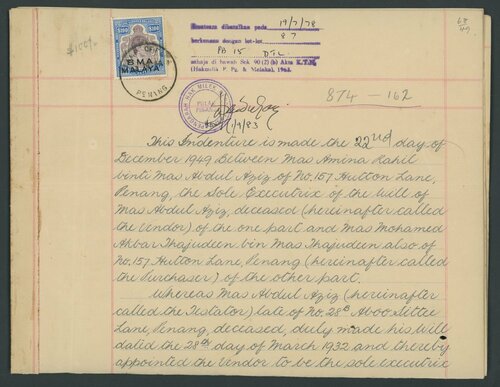 $100
$100
B M A
MALAYA
PENANG
Hakmilik P. Pg. & Melaka), 1963.
19/7/78
87
PB 15 DTL
berkenaan dengan lot-lot
sahaja di bawah Sek 90 (2) (b) Akta K.T.N.
19/83
874 — 162
This Indenture is made the 22nd day of
December 1949 Between Mas Amina Rahil
binti Mas Abdul Aziz of No. 157 Hutton Lane,
Penang, the Sole Executrix of the Will of
Mas Abdul Aziz, deceased (hereinafter called
the Vendor) of the one part and Mas Mohamed
Akbar Thajudeen bin Mas Thajudeen also of
No. 157 Hutton Lane, Penang (hereinafter called
the Purchaser) of the other part.
Whereas Mas Abdul Aziz (hereinafter
called the Testator) late of No. 28B Aboo Sittee
Lane, Penang, deceased, duly made his Will
dated the 28th day of March 1932 and thereby
appointed the Vendor to be the sole executrix